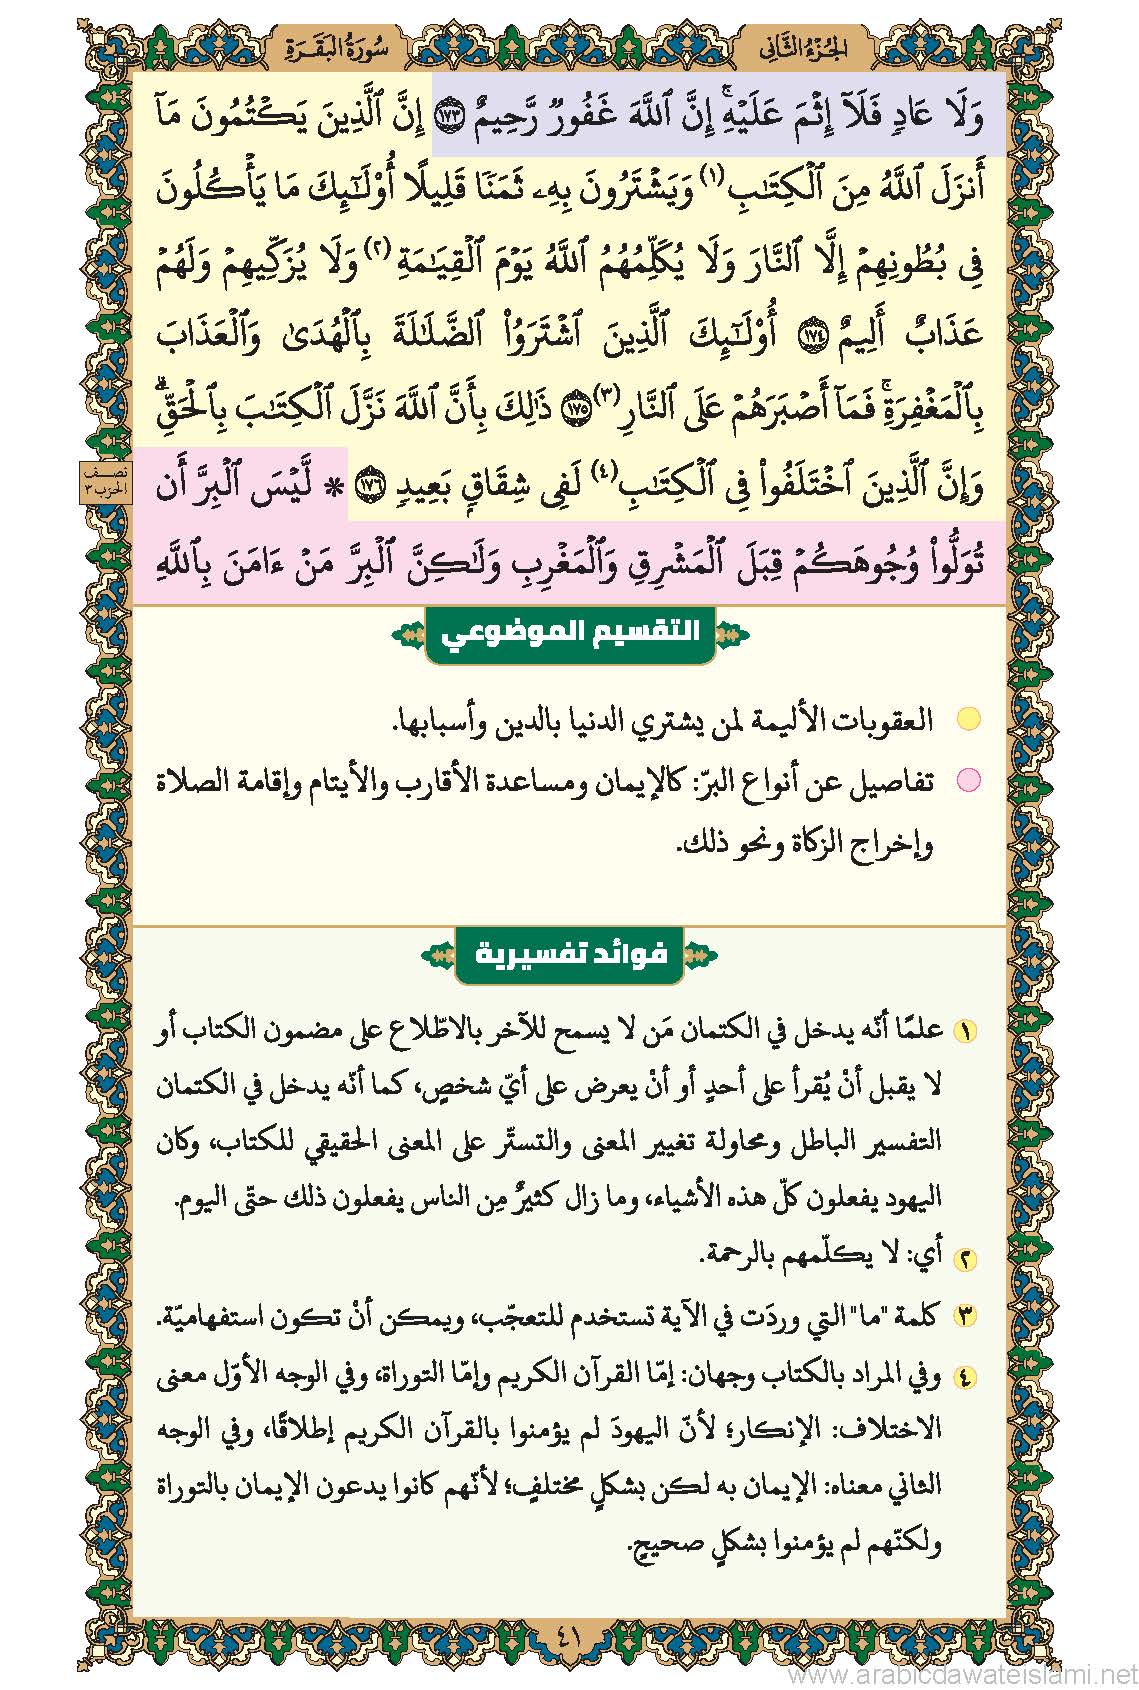 الجُزءُ الثَّانِي
سُورَةُ البَقَرَةِ
وَلَا عَادٖ فَلَآ إِثۡمَ عَلَيۡهِۚ إِنَّ ٱللَّهَ غَفُورٞ رَّحِيمٌ ١٧٣ إِنَّ ٱلَّذِينَ يَكۡتُمُونَ مَآ
أَنزَلَ ٱللَّهُ مِنَ ٱلۡكِتَٰبِ(١) وَيَشۡتَرُونَ بِهِۦ ثَمَنٗا قَلِيلًا أُوْلَٰٓئِكَ مَا يَأۡكُلُونَ
فِي بُطُونِهِمۡ إِلَّا ٱلنَّارَ وَلَا يُكَلِّمُهُمُ ٱللَّهُ يَوۡمَ ٱلۡقِيَٰمَةِ(٢) وَلَا يُزَكِّيهِمۡ وَلَهُمۡ
عَذَابٌ أَلِيمٌ ١٧٤ أُوْلَٰٓئِكَ ٱلَّذِينَ ٱشۡتَرَوُاْ ٱلضَّلَٰلَةَ بِٱلۡهُدَىٰ وَٱلۡعَذَابَ
بِٱلۡمَغۡفِرَةِۚ فَمَآ أَصۡبَرَهُمۡ عَلَى ٱلنَّارِ(٣) ١٧٥ ذَٰلِكَ بِأَنَّ ٱللَّهَ نَزَّلَ ٱلۡكِتَٰبَ بِٱلۡحَقِّۗ
وَإِنَّ ٱلَّذِينَ ٱخۡتَلَفُواْ فِي ٱلۡكِتَٰبِ(٤) لَفِي شِقَاقِۭ بَعِيدٖ ١٧٦ * لَّيۡسَ ٱلۡبِرَّ أَن
نصف
الحزب ٣
تُوَلُّواْ وُجُوهَكُمۡ قِبَلَ ٱلۡمَشۡرِقِ وَٱلۡمَغۡرِبِ وَلَٰكِنَّ ٱلۡبِرَّ مَنۡ ءَامَنَ بِٱللَّهِ
التقسيم الموضوعي
العقوبات الأليمة لمن يشتري الدنيا بالدين وأسبابها.
تفاصيل عن أنواع البرّ: كالإيمان ومساعدة الأقارب والأيتام وإقامة الصلاة
وإخراج الزكاة ونحو ذلك.
فوائد تفسيرية
١ علمًا أنّه يدخل في الكتمان مَن لا يسمح للآخر بالاطّلاع على مضمون الكتاب أو
لا يقبل أنْ يُقرأ على أحدٍ أو أنْ يعرض على أيّ شخصٍ، كما أنّه يدخل في الكتمان
التفسير الباطل ومحاولة تغيير المعنى والتستّر على المعنى الحقيقي للكتاب، وكان
اليهود يفعلون كلّ هذه الأشياء، وما زال كثيرٌ مِن الناس يفعلون ذلك حتّى اليوم.
٢ أي: لا يكلّمهم بالرحمة.
٣ كلمة "ما" التي وردَت في الآية تستخدم للتعجّب، ويمكن أنْ تكون استفهاميّة.
٤ وفي المراد بالكتاب وجهان: إمّا القرآن الكريم وإمّا التوراة، وفي الوجه الأوّل معنى
الاختلاف: الإنكار؛ لأنّ اليهودَ لم يؤمنوا بالقرآن الكريم إطلاقًا، وفي الوجه
الثاني معناه: الإيمان به لكن بشكلٍ مختلفٍ؛ لأنّهم كانوا يدعون الإيمان بالتوراة
ولكنّهم لم يؤمنوا بشكلٍ صحيحٍ.
٤١
www.arabicdawateislami.net